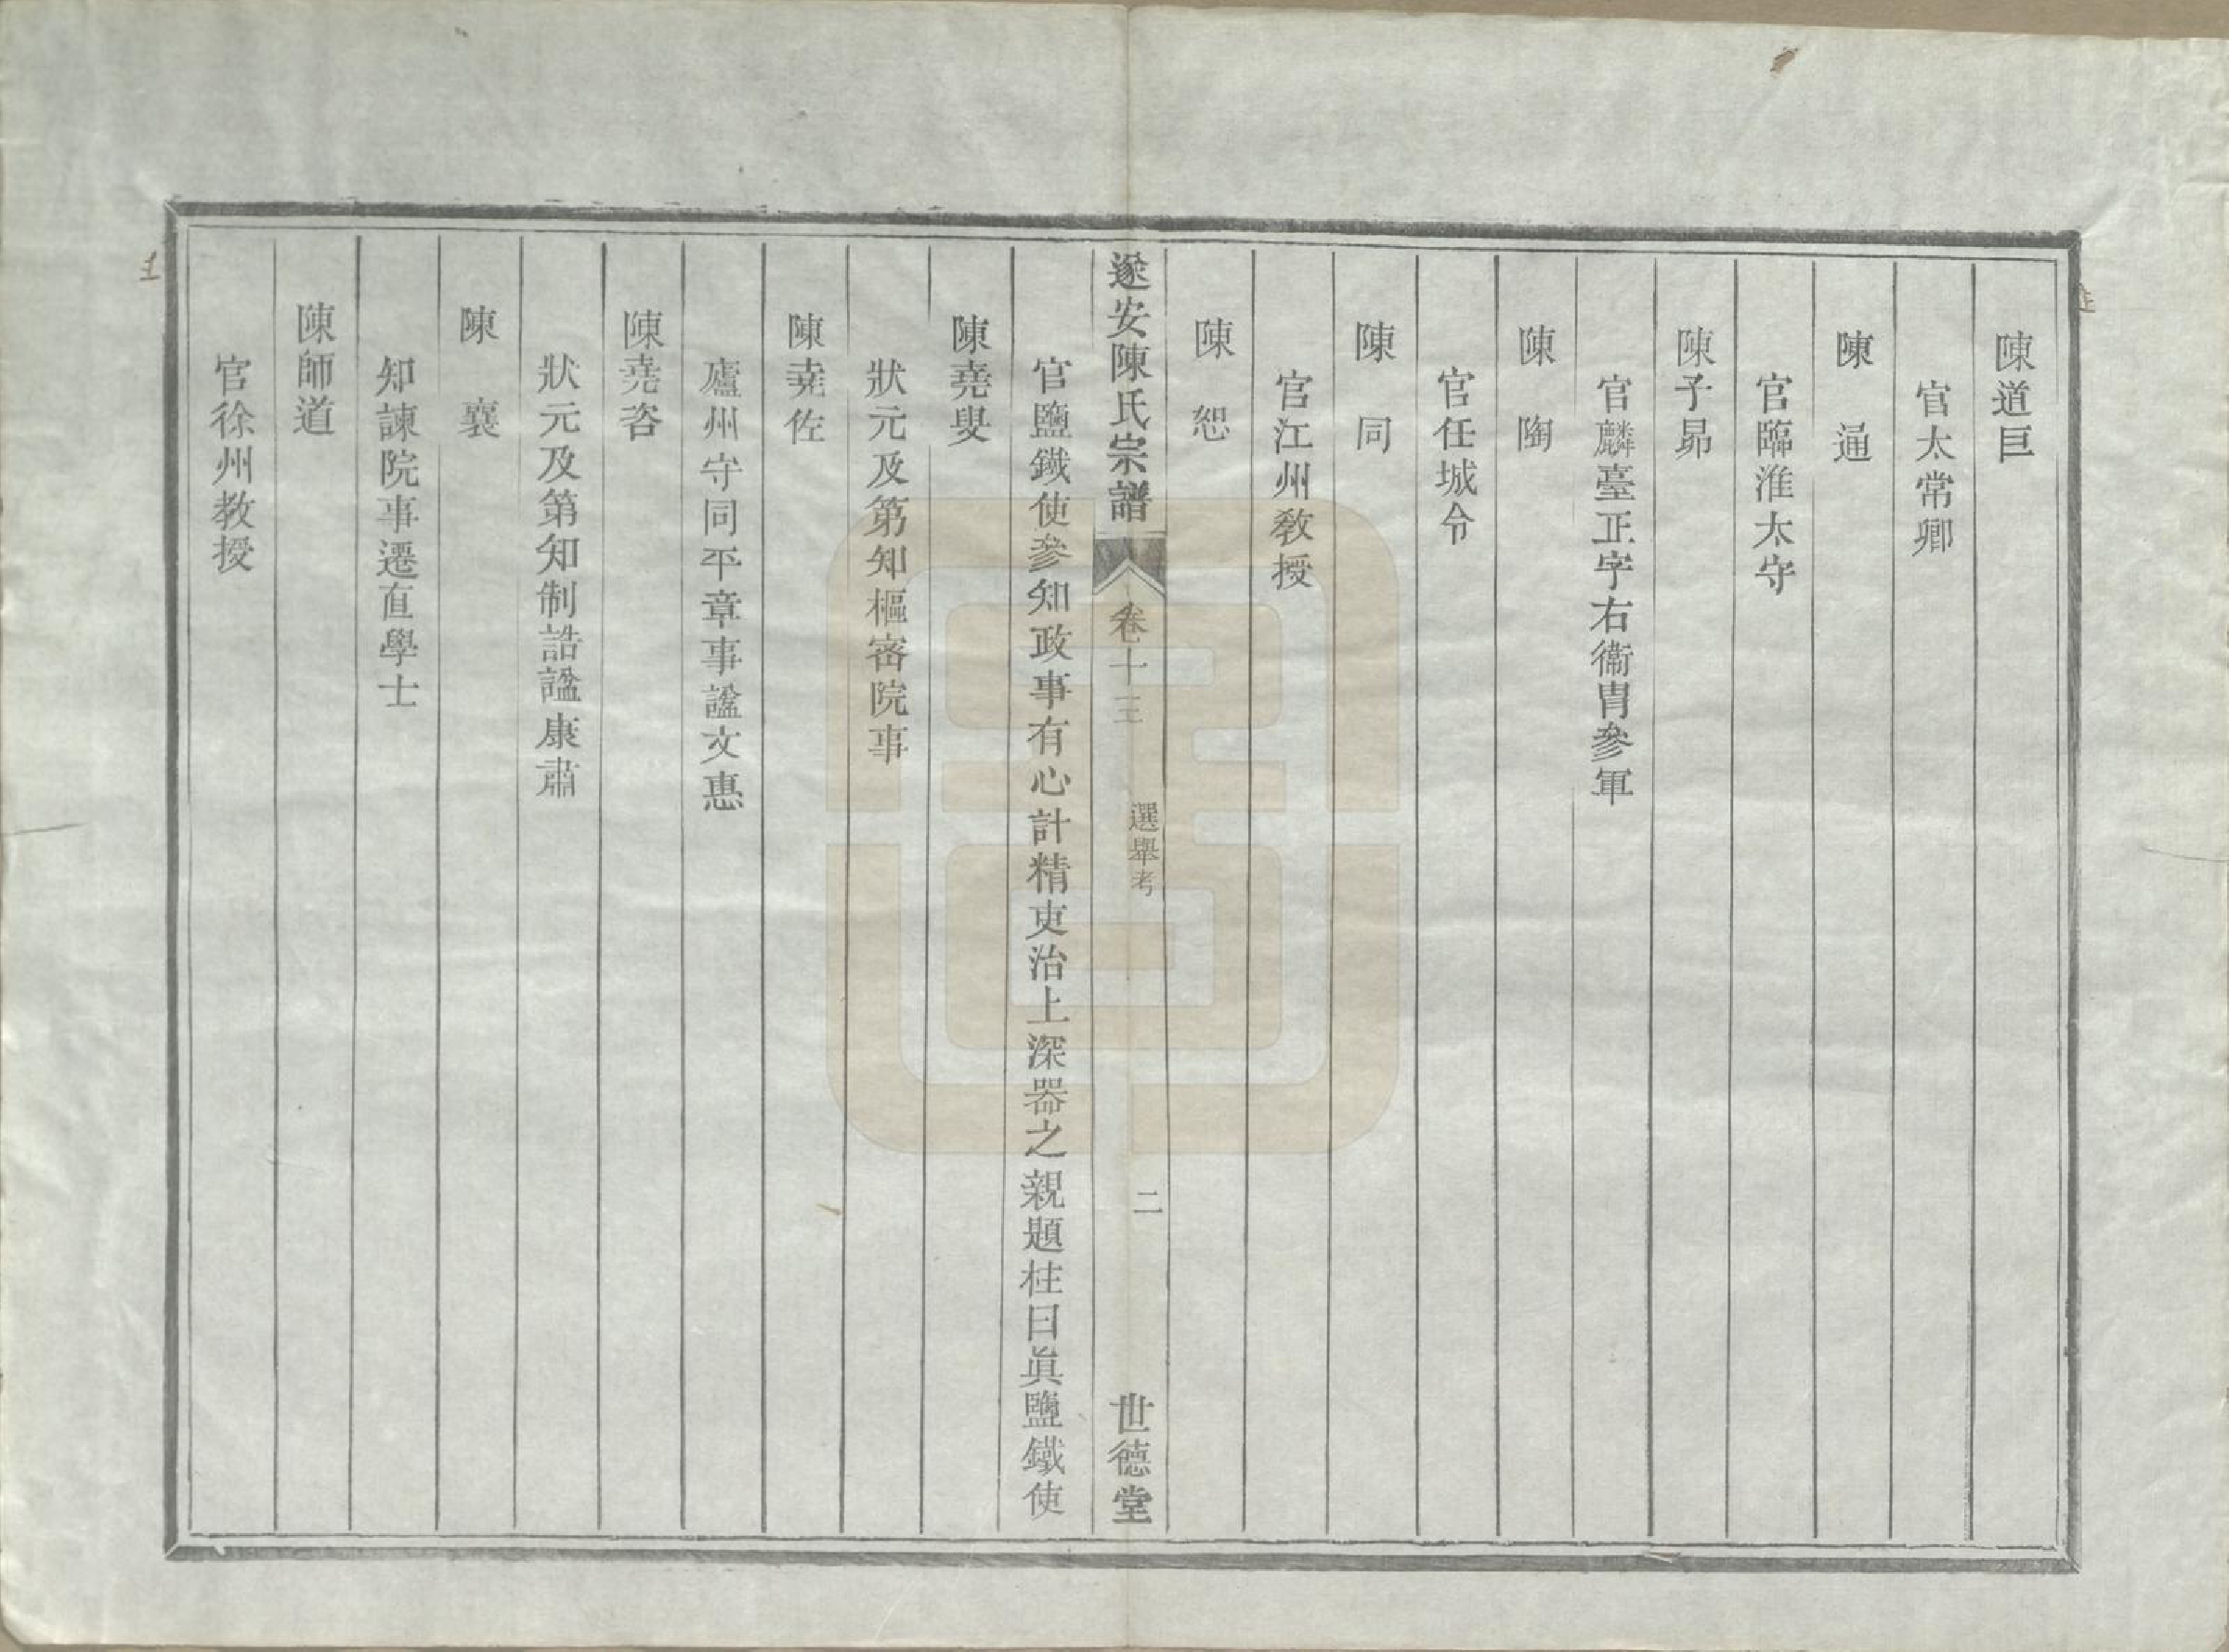 陳道巨
官太常卿
陳通
官臨淮太守
陳子昴
官麟臺正字右衞胄參軍
陳陶
官任城令
陳同
官江州敎授
陳恕
遂安陳氏宗譜
卷十三
選舉考
二
世德堂
官鹽鐵使參知政事有心計精吏治上深器之親題柱曰眞鹽鐵使
陳堯叟
狀元及第知樞密院事
陳堯佐
廬州守同平章事諡文惠
陳堯咨
狀元及第知制誥諡康肅
陳襄
知諫院事遷直學士
陳師道
官徐州教授